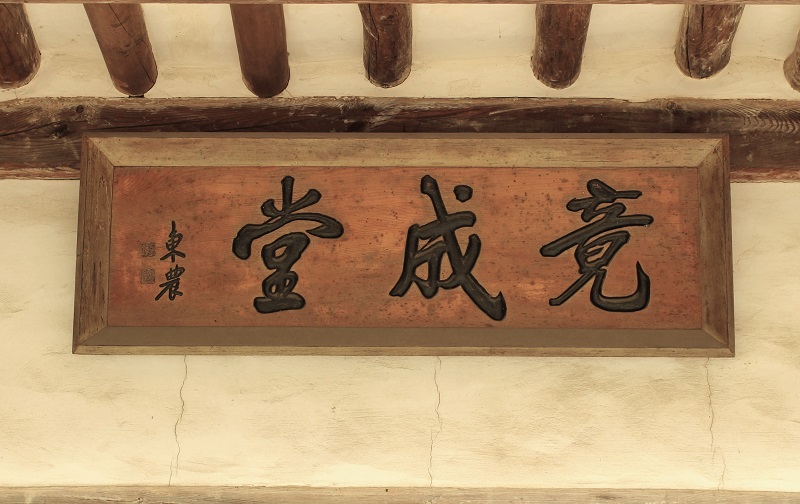 竟成堂
東農